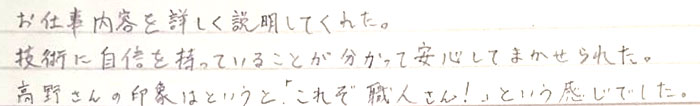 お仕事内容を詳しく説明してくれた。
技術に自信を持っていることが分かって安心してまかせられた。
高野さんの印象はというと、「これぞ職人さん!」という感じでした。